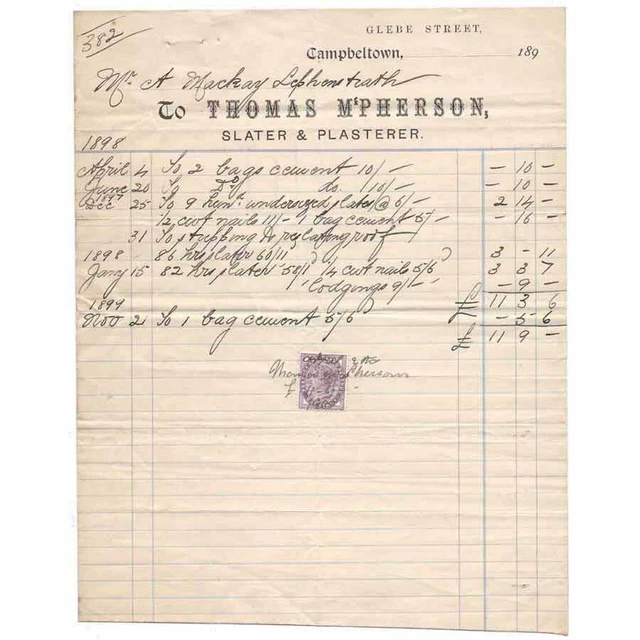 382
GLEBE STREET,
Campbeltown, 189
Mr A Mackay Lephenstrath
To THOMAS McPHERSON,
SLATER & PLASTERER.
1898
April 4 To 2 bags cement 10/– – 10 –
June 20 To Do do. 10/– – 10 –
Dec 25 To 9 hund undersized slates @ 6/– 2 14 –
1/2 cwt nails 11/– 1 bag cement 5/– – 16 –
31 To stripping & replacing roof
1898 86 hrs slater 60/11 3 – 11
Jany 15 82 hrs slater 58/1 1/4 cwt nails 5/6 3 3 7
lodgings 9/– – 9 –
£ 11 3 6
1899
Nov 21 To 1 bag cement 5/6 – 5 6
£ 11 9 –
Thomas McPherson
£